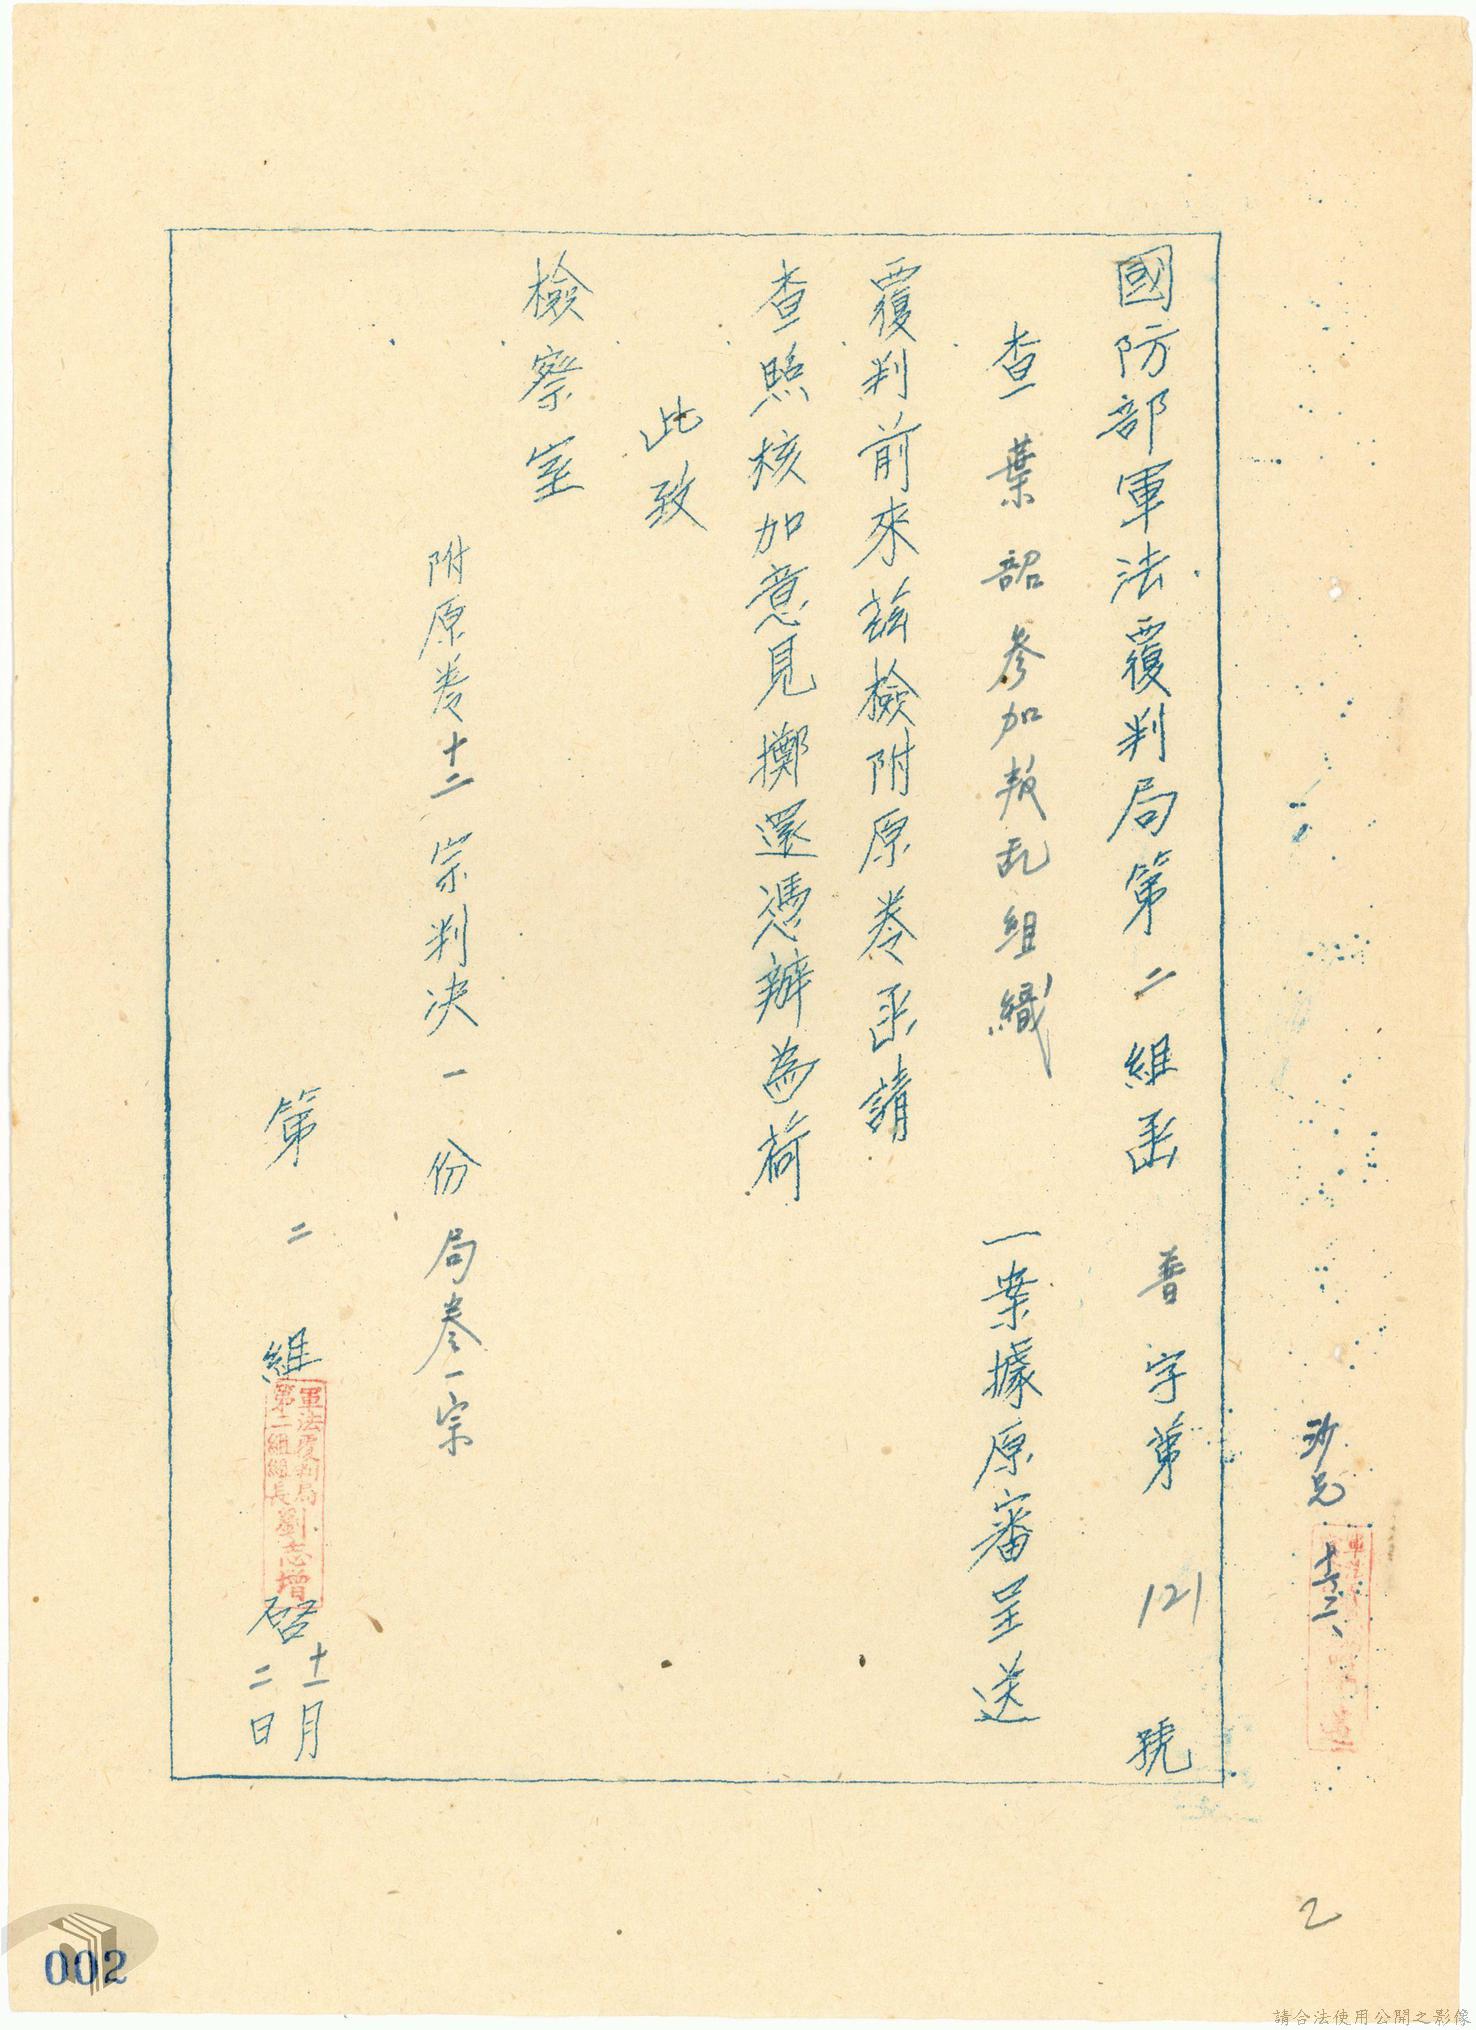 沙兄
十、三、
國防部軍法覆判局第二組函 普字第121號
查葉韶參加叛乱組織 一案據原審呈送
覆判前來茲檢附原卷函請
查照核加意見擲還憑辦為荷
此致
檢察室
附原卷十二宗判決一份局卷一宗
第二組
軍法覆判局
第二組組長劉志增
啓
十一月
二日
2
002
請合法使用公開之影像